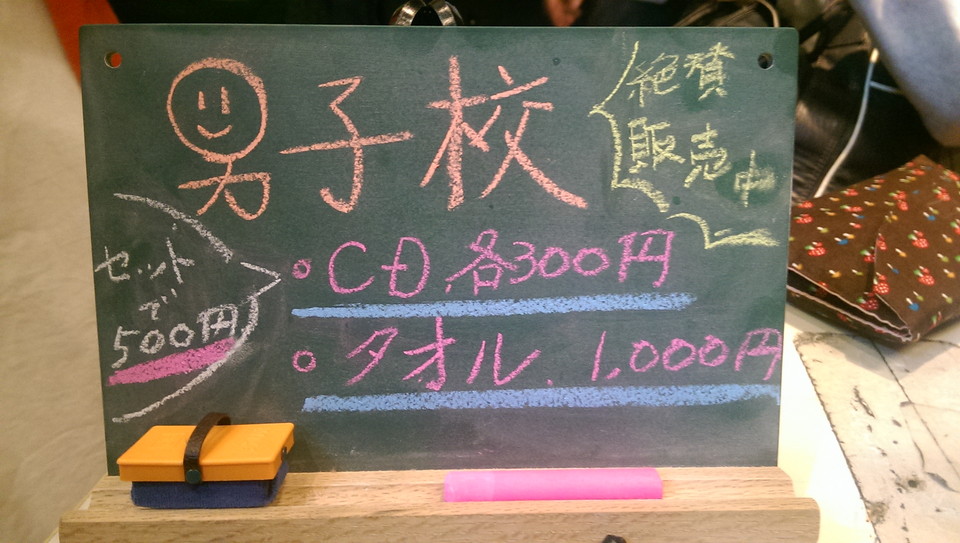 男子校
絶賛
販売中
セット
で
500円
○ CD 各300円
○ タオル 1,000円